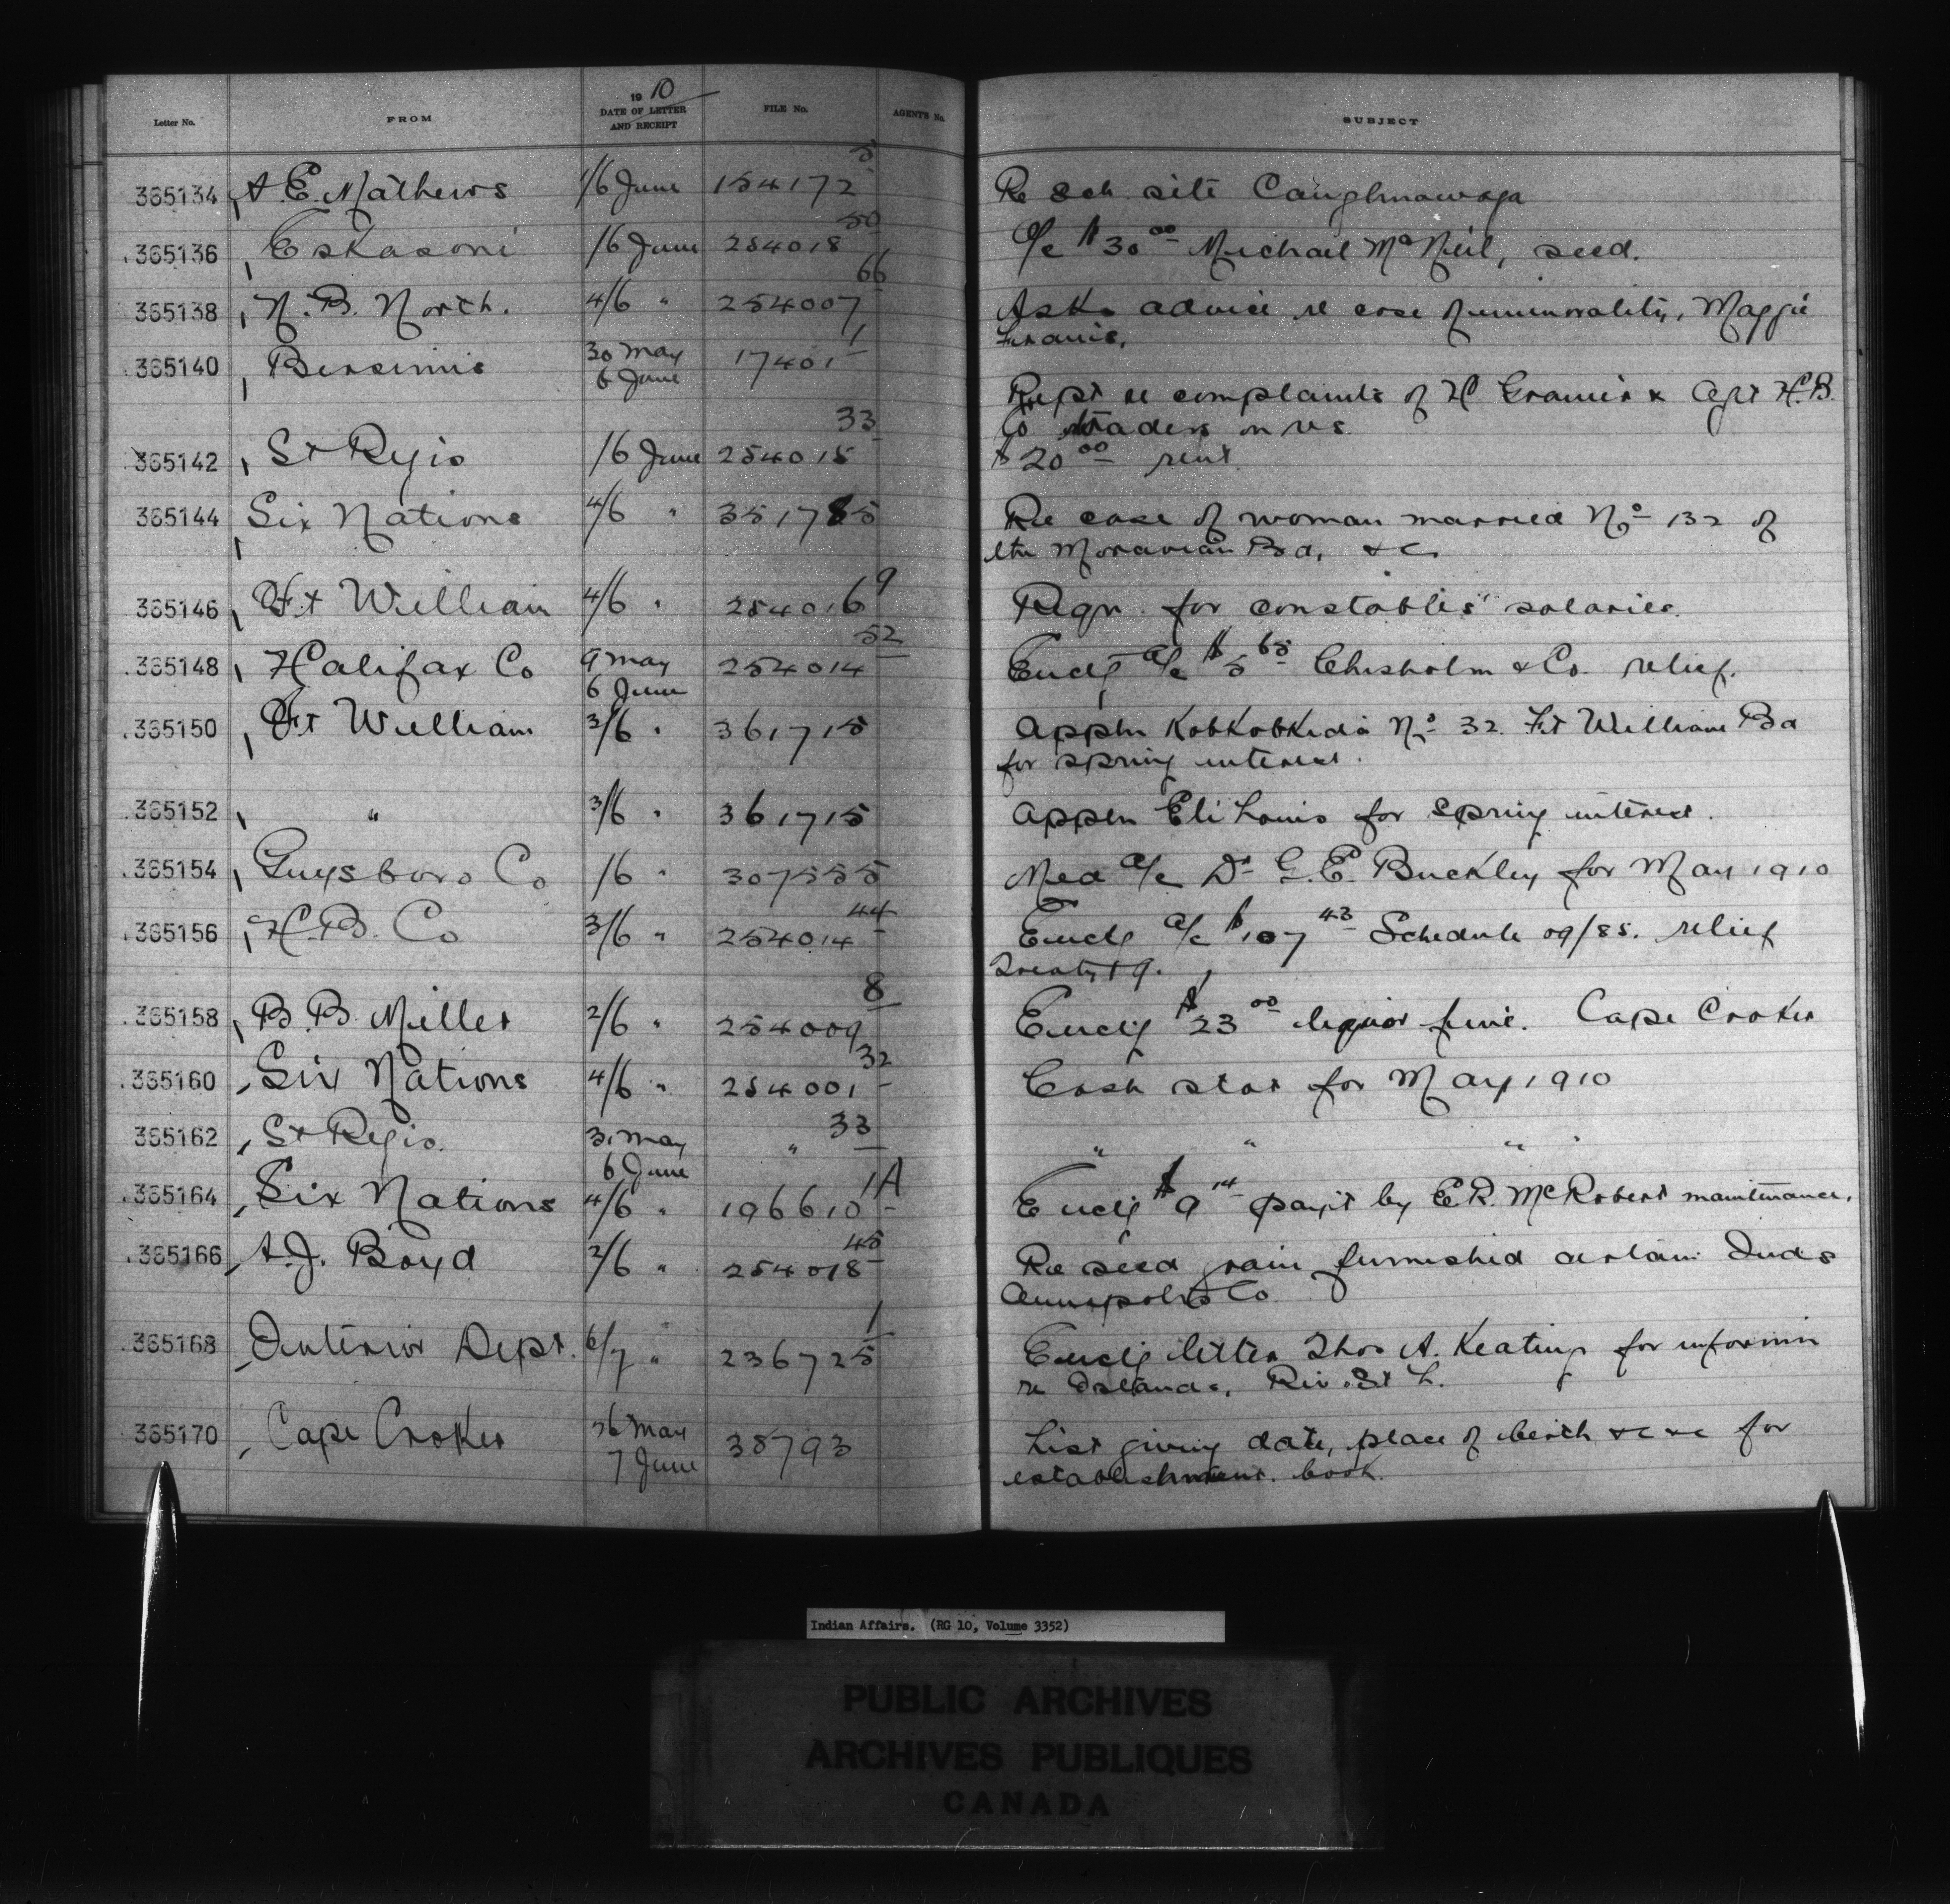 19 10
Letter No. FROM DATE OF LETTER AND RECEIPT FILE No. AGENT'S No. SUBJECT
365134 A. E. Mathews 1/6 June 154172 5 Re Sch site Caughnawaga
365136 Eskasoni 1/6 June 254018 50 a/c $30 00 Michael McNeil, seed.
365138 N. B. North. 4/6 " 254007 66 Asks advice re case of immorality, Maggie
Francis,
365140 Bersimis 30 May 6 June 17401 1
Rept re complaints of H & Agt H.B.
Co traders on res.
365142 St Regis 1/6 June 254015 33 $20 00 rent.
365144 Six Nations 4/6 " 351785 Re case of woman married No 132 of
the Moravian Bd, &c
365146 Ft William 4/6 " 254016 9 Reqn. for constables' salaries.
365148 Halifax Co 9 May 6 June 254014 52 Enclg a/c $5 65 Chisholm & Co. relief.
365150 Ft William 3/6 " 361715 Appln KobKobKida No 32 Ft William Bd
for spring interest.
365152 " 3/6 " 361715 Appln Eli Louis for spring interest.
365154 Guysboro Co 1/6 " 307555 Med a/c Dr G. E. Buckley for May 1910
365156 H. B. Co 3/6 " 254014 44 Enclg a/c $107 43 Schedule 09/85. relief
Treaty 9.
365158 B. B. Miller 2/6 " 254009 8 Enclg $23 00 liquor fine. Cape Croker
365160 Six Nations 4/6 " 254001 32 Cash stat for May 1910
365162 St Regis. 31 May 6 June " 33 " " " "
365164 Six Nations 4/6 " 196610 1A Enclg $9 14 payt by E. R. McRobert maintenance.
365166 A. J. Boyd 2/6 " 254018 45 Re seed grain furnished certain Inds
Annapolis Co
365168 Interior Dept. 6/7 " 236725 1 Enclg letter Thos A. Keating for informn
re Islands, Riv. St L.
365170 Cape Croker 26 May 7 June 38793 List giving date, place of birth &c &c for
establishment book.
Indian Affairs. (RG 10, Volume 3352)
PUBLIC ARCHIVES
ARCHIVES PUBLIQUES
CANADA